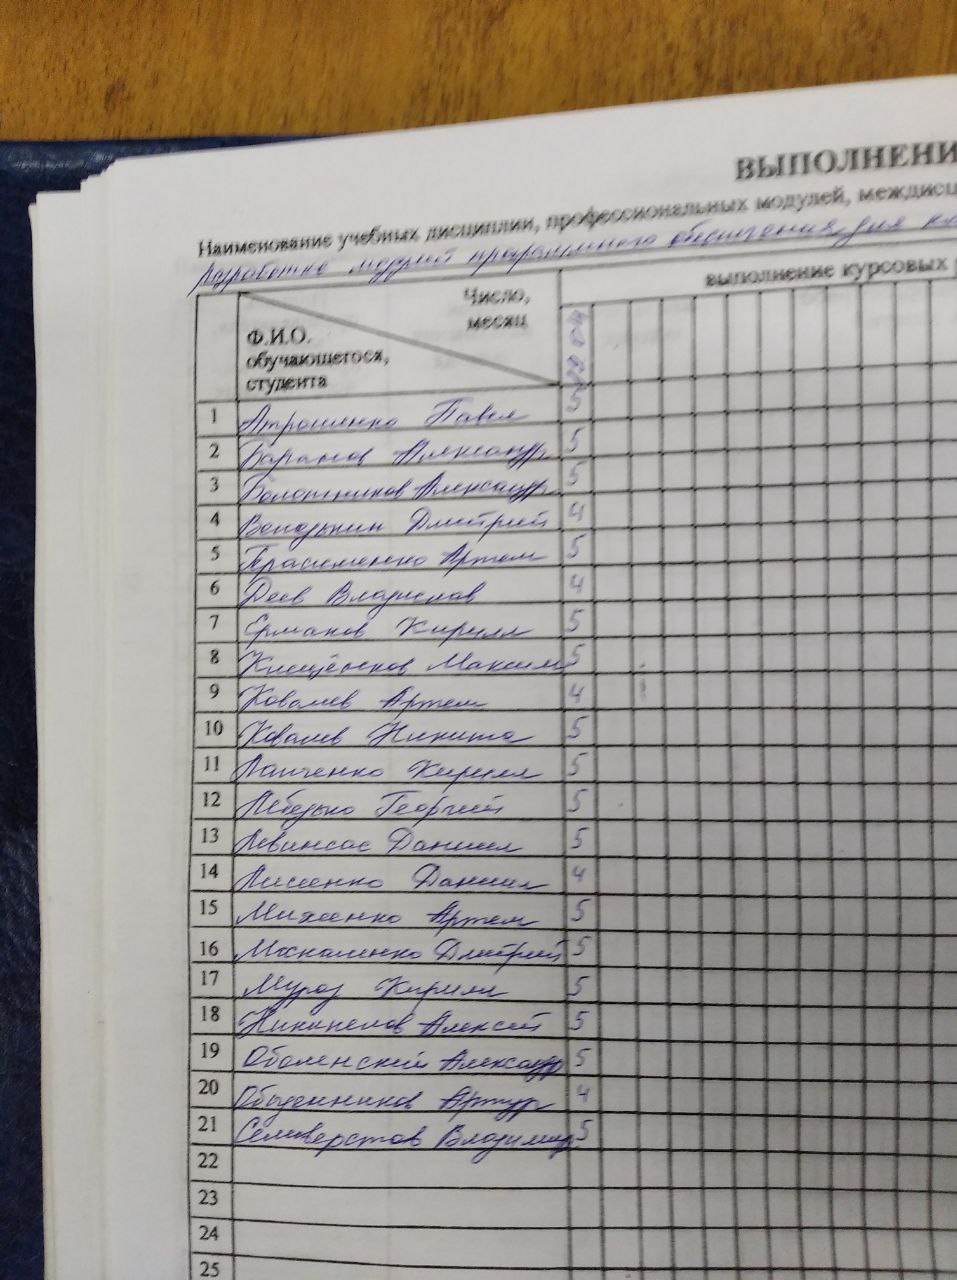 ВЫПОЛНЕНИ
Наименование учебных дисциплин, профессиональных модулей, междисц
Разработка модулей программного обеспечения для
выполнение курсовых р
Число,
месяц
Ф.И.О.
обучающегося,
студента
22 04
1 Атрошенко Павел 5
2 Баранов Александр 5
3 Болотников Александр 5
4 Володькин Дмитрий 4
5 Герасименко Артем 5
6 Деев Владислав 4
7 Ермаков Кирилл 5
8 Клещёнков Максим 5
9 Ковалев Артем 4
10 Ковалев Никита 5
11 Лапченко Кирилл 5
12 Лебедько Георгий 5
13 Левинсас Даниил 5
14 Лисенко Даниил 4
15 Михеенко Артем 5
16 Москаленко Дмитрий 5
17 Мураз Кирилл 5
18 Алексей 5
19 Оболенский Александр 5
20 Обыденников Артур 4
21 Селиверстов Владимир 5
22
23
24
25